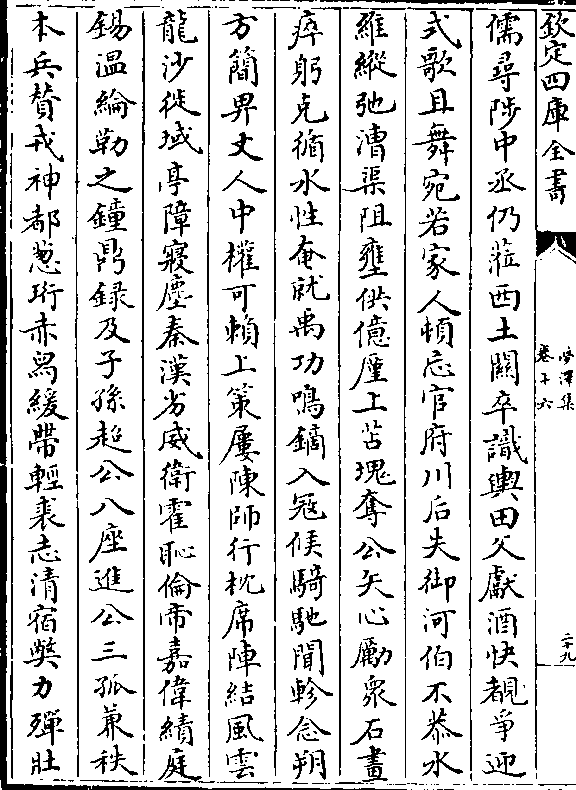 欽定四庫全書
夢澤集
卷十六
二十九
儒尋陟中丞仍蒞西土關卒識輿田父獻酒快覩爭迎
式歌且舞宛若家人頓忘官府川后失御河伯不恭水
維縱弛漕渠阻壅供億厪上苫塊奪公矢心勵衆石畫
瘁躬克循水性奄就禹功鳴鏑入冦候騎馳聞軫念朔
方簡畀丈人中權可頼上策屢陳師行枕席陣結風雲
龍沙徙域亭障寢塵秦漢劣威衛霍恥倫帝嘉偉績庭
錫溫綸勒之鐘鼎録及子孫超公八座進公三孤兼秩
本兵賛戎神都葱珩赤舄緩帶輕裘志清宿獘力殫壯